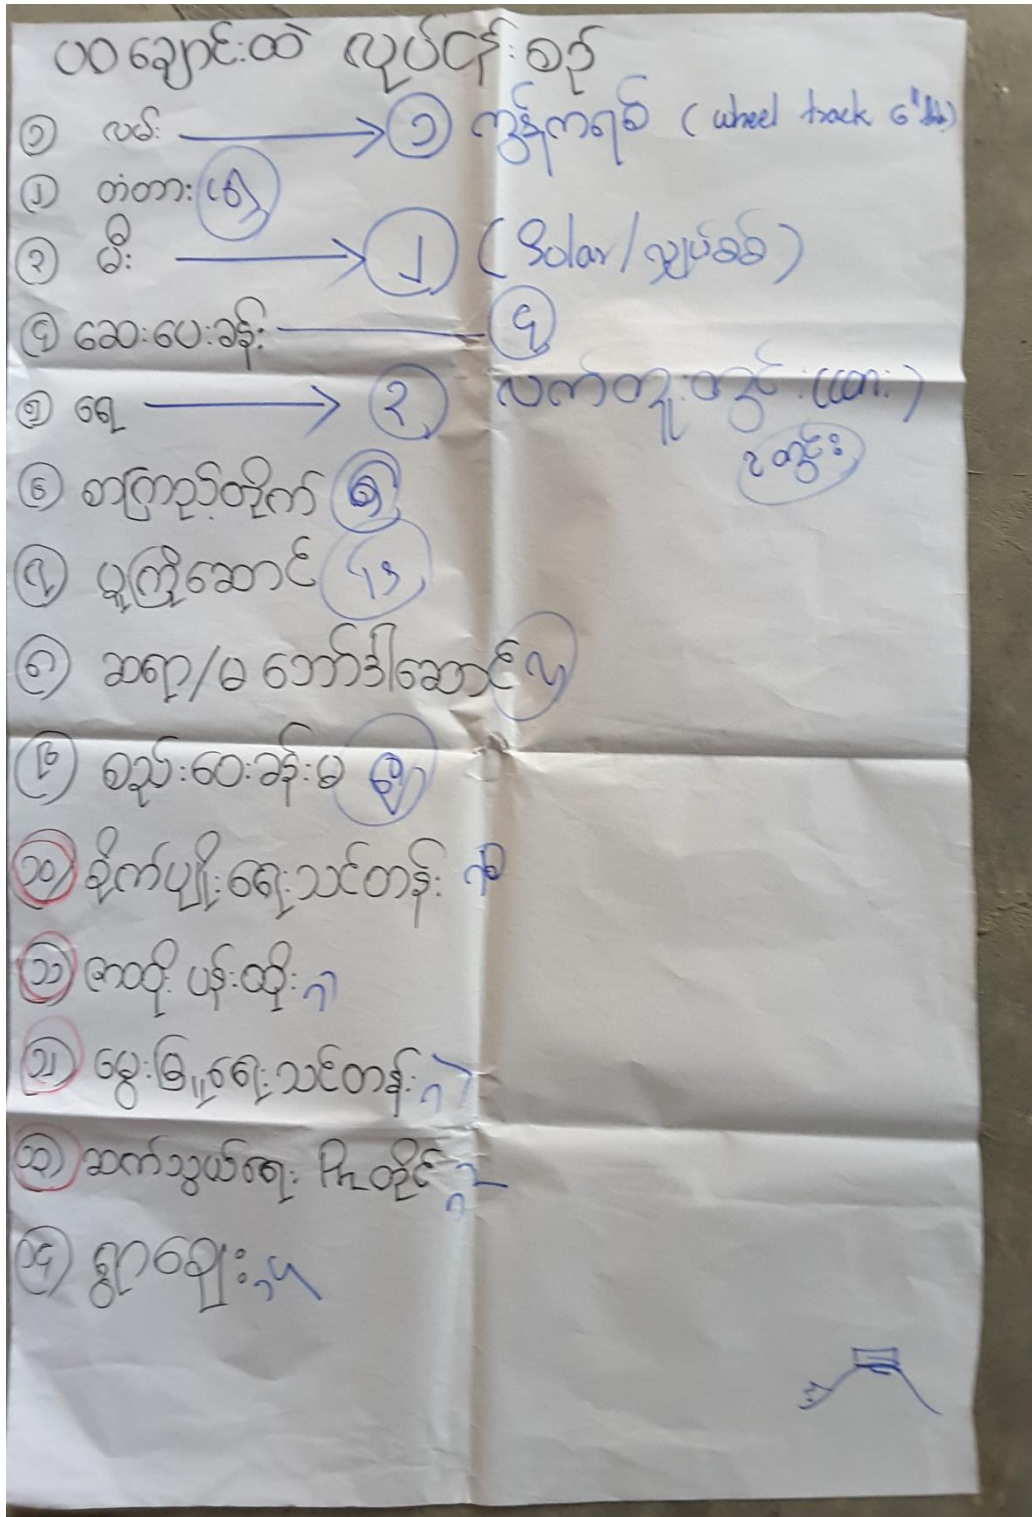 ပဝချောင်းထဲ လုပ်ငန်းစဉ်
၁ လမ်း → ၁ ကွန်ကရစ် (wheel track 6"
၂ တံတား
၃ မီး → ၂ (Solar/လျှပ်စစ်)
၄ ဆေးပေးခန်း ၄
၅ ရေ → ၃ လက်တူးတွင်း
၃ တွင်း
၆ စာကြည့်တိုက် ၅
၇ မူကြိုဆောင်
၈ ဆရာ/မ ဘော်ဒါဆောင်
၉ စည်းဝေးခန်းမ
၁၀ စိုက်ပျိုးရေးသင်တန်း
၁၁ ဇာထိုး ပန်းထိုး
၁၂ မွေးမြူရေးသင်တန်း
၁၃ ဆက်သွယ်ရေး Ph တိုင်
၁၄ ရွာဈေး